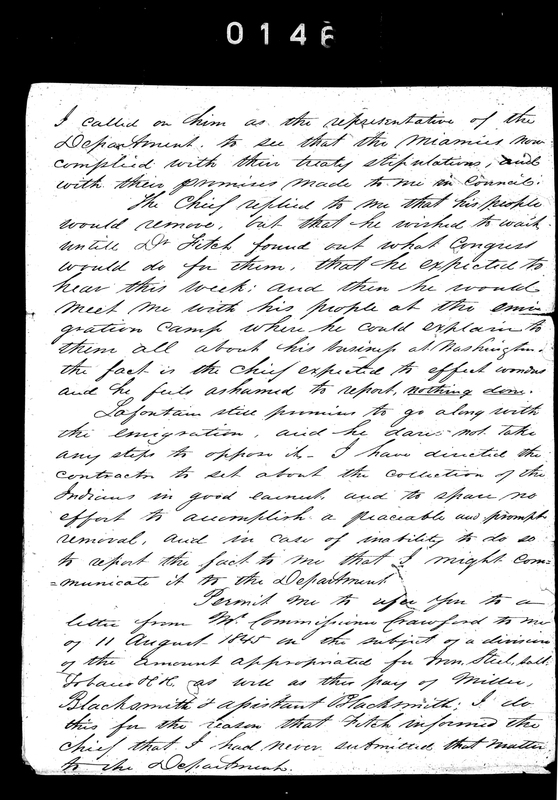 0146
I called on him as the representative of the
Department. to see that the Miamies now
complied with their treaty stipulations, and
with their promises made to me in Council.
The Chief replied to me that his people
would remove, but that he wished to wait
untill Dr Fitch found out what Congress
would do for them, that he expected to
hear this week: and then he would
meet me with his people at the emi
gration camp where he could explain to
them all about his business at Washington.
the fact is the Chief expected to effect wonders
and he feels ashamed to report, nothing done.
Lafontain still promises to go along with
the emigration, and he dare not take
any steps to oppose it - I have directed the
contractor to set about the collection of the
Indians in good earnest and to spare no
effort to accomplish a peaceable and prompt
removal, and in case of inability to do so
to report the fact to me that I might com=
=municate it to the Department
Permit me to refer you to a
letter from Mr Commissioner Crawford to me
of 11 August 1845 on the subject of a division
of the amount appropriated for Iron, Steel, Salt
Tobacco &c &c. as well as the pay of Miller,
Blacksmith & assistant Blacksmith; I do
this for the reason that Fitch informed the
Chief that I had never submitted that matter
to the Department.